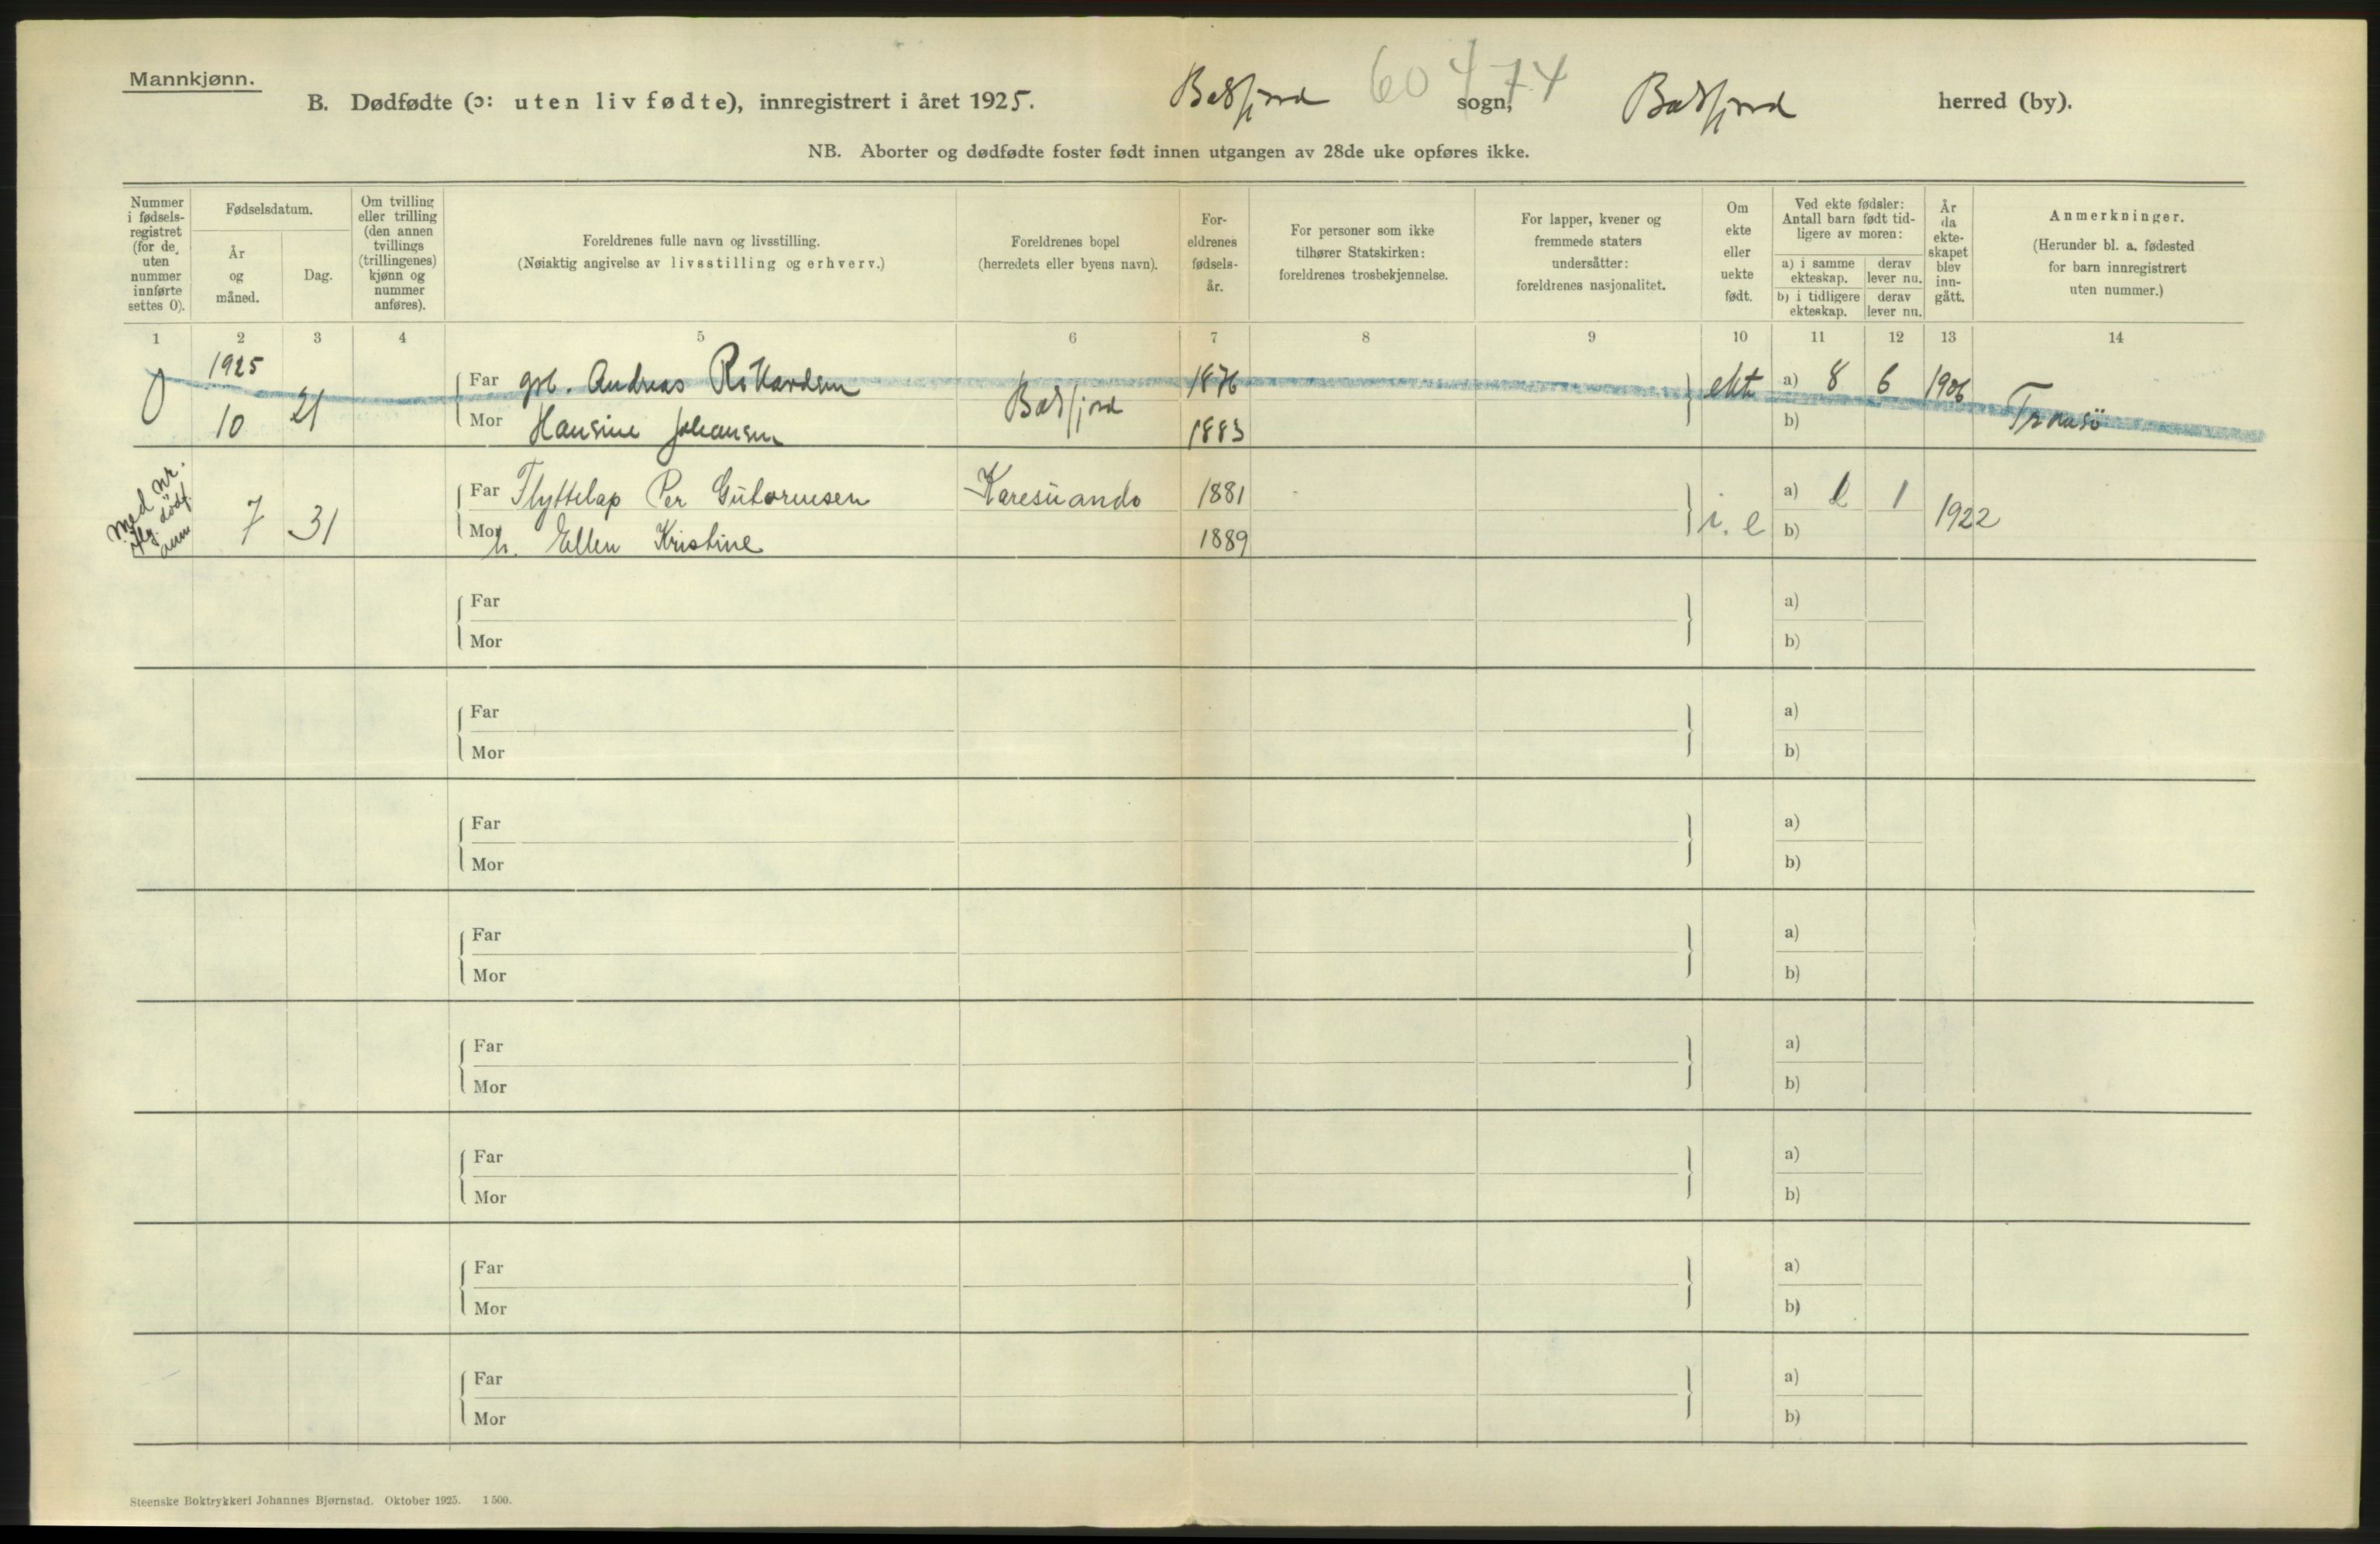 Mannkjønn.
B. Dødfødte (ɔ: uten liv fødte), innregistrert i året 1925. Balsfjord sogn, Balsfjord herred (by).
60 474
NB. Aborter og dødfødte foster født innen utgangen av 28de uke opføres ikke.
Nummer i fødsels-registret (for de uten nummer innførte settes 0).
Fødselsdatum.
År og måned.
Dag.
Om tvilling eller trilling (den annen tvillings (trillingenes) kjønn og nummer anføres).
Foreldrenes fulle navn og livsstilling.
(Nøiaktig angivelse av livsstilling og erhverv.)
Foreldrenes bopel
(herredets eller byens navn).
For-eldrenes fødsels-år.
For personer som ikke tilhører Statskirken: foreldrenes trosbekjennelse.
For lapper, kvener og fremmede staters undersåtter: foreldrenes nasjonalitet.
Om ekte eller uekte født.
Ved ekte fødsler: Antall barn født tid-ligere av moren:
a) i samme ekteskap. derav lever nu.
b) i tidligere ekteskap. derav lever nu.
År da ekte-skapet blev inn-gått.
Anmerkninger.
(Herunder bl. a. fødested for barn innregistrert uten nummer.)
1 2 3 4 5 6 7 8 9 10 11 12 13 14
1925
0 10 21 Far Andreas Rikardsen Balsfjord 1876 ekt a) 8 6 1906 Tromsö
Mor Hansine Johansen 1883 b)
Med nr.
dødf.
7 31 Far Flyttelap Per Gutormsen Karesuando 1881 i. e a) 1 1922
Mor h. Ellen Kristine 1889 b)
Far a)
Mor b)
Far a)
Mor b)
Far a)
Mor b)
Far a)
Mor b)
Far a)
Mor b)
Far a)
Mor b)
Far a)
Mor b)
Far a)
Mor b)
Steenske Boktrykkeri Johannes Bjørnstad. Oktober 1925. 1500.